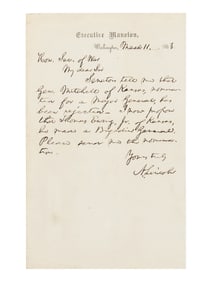 Executive Mansion,
Washington, March 11, 1863
Hon. Sec. of War
My dear Sir
Senators tell me that
Gen. Mitchell of Kansas, nomina-
tion for a Major General, has
been rejected. I now propose
that Thomas Ewing, Jr. of Kansas,
be made a Brigadier General.
Please send me the nomina-
tion.
Yours truly
A. Lincoln